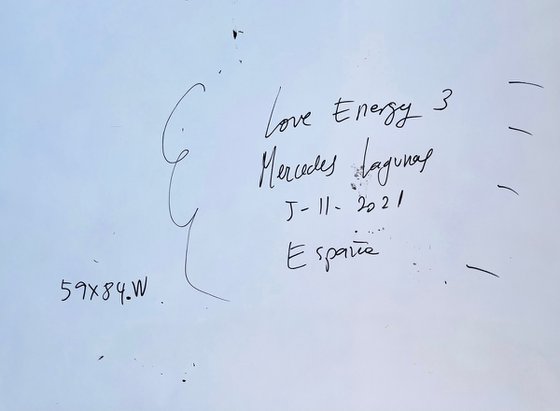 Love Energy 3
Mercedes Lagunas
J-11-2021
España
59x84.W